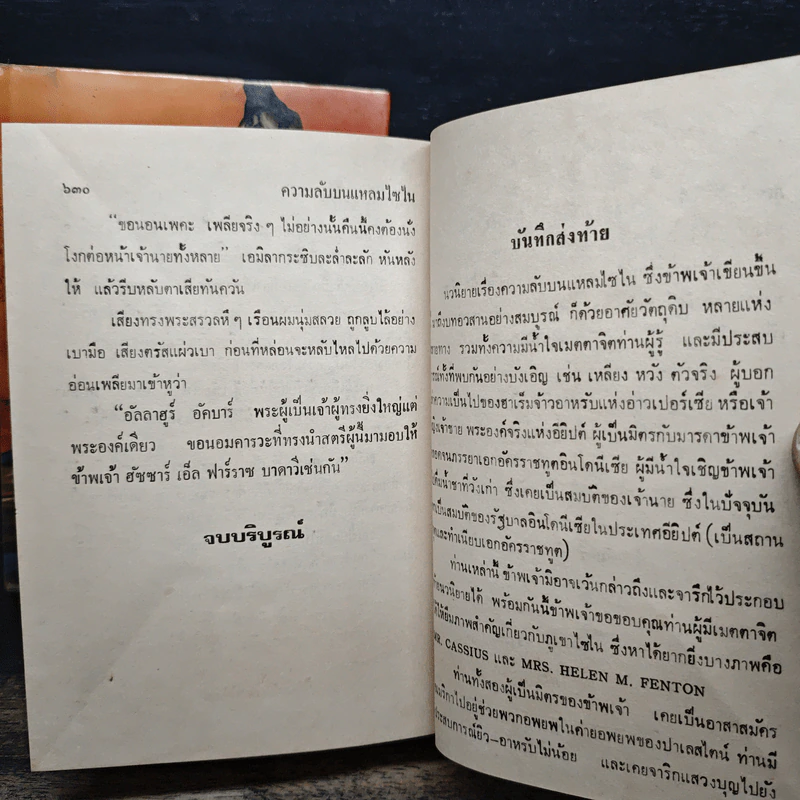 ๖๓๐ ความลับบนแหลมไซไน
“ขอนอนเพคะ เพลียจริง ๆ ไม่อย่างนั้นคืนนี้คงต้องนั่ง
โงกต่อหน้าเจ้านายทั้งหลาย” เอมิลากระซิบละล่ำละลัก หันหลัง
ให้ แล้วรีบหลับตาเสียทันควัน
เสียงทรงพระสรวลหึ ๆ เรือนผมนุ่มสลวย ถูกลูบไล้อย่าง
เบามือ เสียงตรัสแผ่วเบา ก่อนที่หล่อนจะหลับไหลไปด้วยความ
อ่อนเพลียมาเข้าหูว่า
“อัลลาฮูร์ อัคบาร์ พระผู้เป็นเจ้าผู้ทรงยิ่งใหญ่แต่
พระองค์เดียว ขอนอมคารวะที่ทรงนำสตรีผู้นี้มามอบให้
ข้าพเจ้า ฮัซซาร์ เอ็ล ฟาร์ราช บาดาวีเช่นกัน”
จบบริบูรณ์
บันทึกส่งท้าย
นวนิยายเรื่องความลับบนแหลมไซไน ซึ่งข้าพเจ้าเขียนขึ้น
ถึงบทอวสานอย่างสมบูรณ์ ก็ด้วยอาศัยวัตถุดิบ หลายแห่ง
ทาง รวมทั้งความมีน้ำใจเมตตาจิตท่านผู้รู้ และมีประสบ
ทั้งที่พบกันอย่างบังเอิญ เช่น เหลียง หวัง ตัวจริง ผู้บอก
ความเป็นไปของฮาเร็มจ้าวอาหรับแห่งอ่าวเปอร์เซีย หรือเจ้า
เจ้าชาย พระองค์จริงแห่งอียิปต์ ผู้เป็นมิตรกับมารดาข้าพเจ้า
จนภรรยาเอกอัครราชทูตอินโดนีเซีย ผู้มีน้ำใจเชิญข้าพเจ้า
ดื่มน้ำชาที่วังเก่า ซึ่งเคยเป็นสมบัติของเจ้านาย ซึ่งในปัจจุบัน
เป็นสมบัติของรัฐบาลอินโดนีเซียในประเทศอียิปต์ (เป็นสถาน
และทำเนียบเอกอัครราชทูต)
ท่านเหล่านี้ ข้าพเจ้ามิอาจเว้นกล่าวถึงและจารึกไว้ประกอบ
นวนิยายได้ พร้อมกันนี้ข้าพเจ้าขอขอบคุณท่านผู้มีเมตตาจิต
ให้ยืมภาพสำคัญเกี่ยวกับภูเขาไซไน ซึ่งหาได้ยากยิ่งบางภาพคือ
MR. CASSIUS และ MRS. HELEN M. FENTON
ท่านทั้งสองผู้เป็นมิตรของข้าพเจ้า เคยเป็นอาสาสมัคร
ไปอยู่ช่วยพวกอพยพในค่ายอพยพของปาเลสไตน์ ท่านมี
ประสบการณ์ยิว-อาหรับไม่น้อย และเคยจาริกแสวงบุญไปยัง